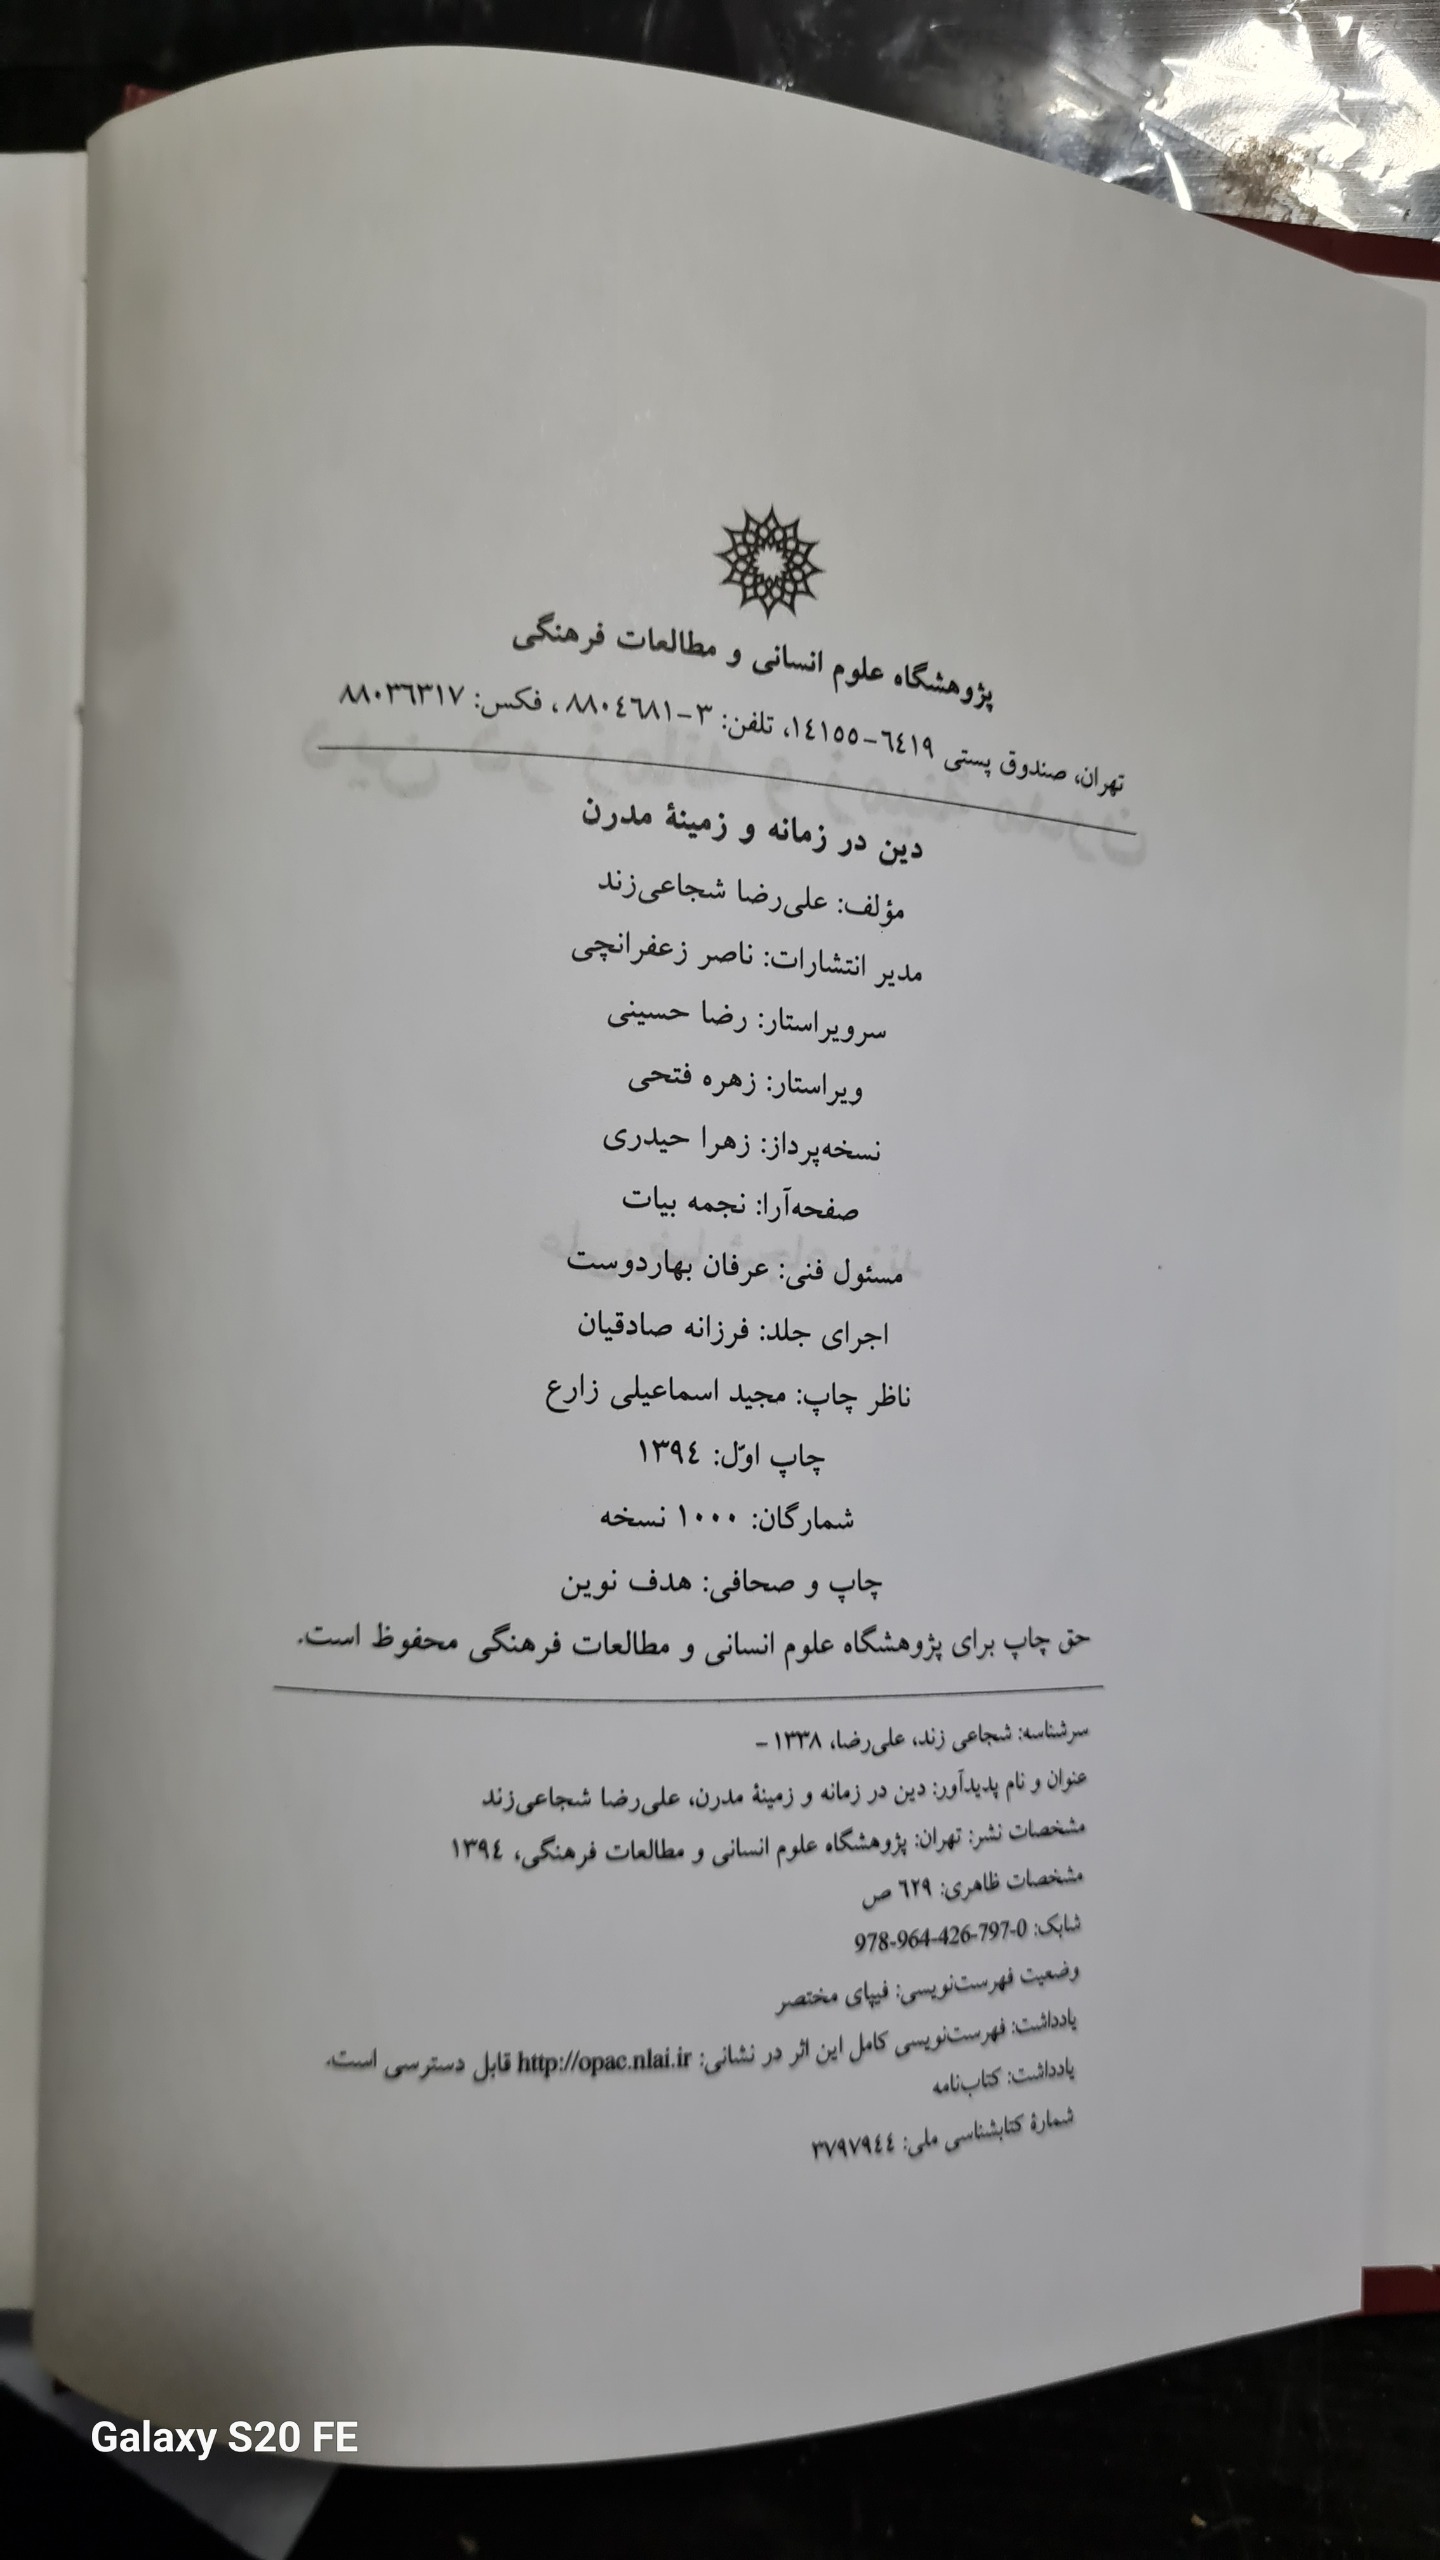 پژوهشگاه علوم انسانی و مطالعات فرهنگی
تهران، صندوق پستی ٦٤١٩-١٤١٥٥، تلفن: ٣-٨٨٠٤٦٨١، فکس: ٨٨٠٣٦٣١٧
دین در زمانه و زمینۀ مدرن
مؤلف: علی‌رضا شجاعی‌زند
مدیر انتشارات: ناصر زعفرانچی
سرویراستار: رضا حسینی
ویراستار: زهره فتحی
نسخه‌پرداز: زهرا حیدری
صفحه‌آرا: نجمه بیات
مسئول فنی: عرفان بهاردوست
اجرای جلد: فرزانه صادقیان
ناظر چاپ: مجید اسماعیلی زارع
چاپ اوّل: ١٣٩٤
شمارگان: ١٠٠٠ نسخه
چاپ و صحافی: هدف نوین
حق چاپ برای پژوهشگاه علوم انسانی و مطالعات فرهنگی محفوظ است.
سرشناسه: شجاعی زند، علی‌رضا، ١٣٣٨ –
عنوان و نام پدیدآور: دین در زمانه و زمینۀ مدرن، علی‌رضا شجاعی‌زند
مشخصات نشر: تهران: پژوهشگاه علوم انسانی و مطالعات فرهنگی، ١٣٩٤
مشخصات ظاهری: ٦٢٩ ص
شابک: 978-964-426-797-0
وضعیت فهرست‌نویسی: فیپای مختصر
یادداشت: فهرست‌نویسی کامل این اثر در نشانی: http://opac.nlai.ir قابل دسترسی است.
یادداشت: کتاب‌نامه
شمارۀ کتابشناسی ملی: ٣٧٩٧٩٤٤
Galaxy S20 FE